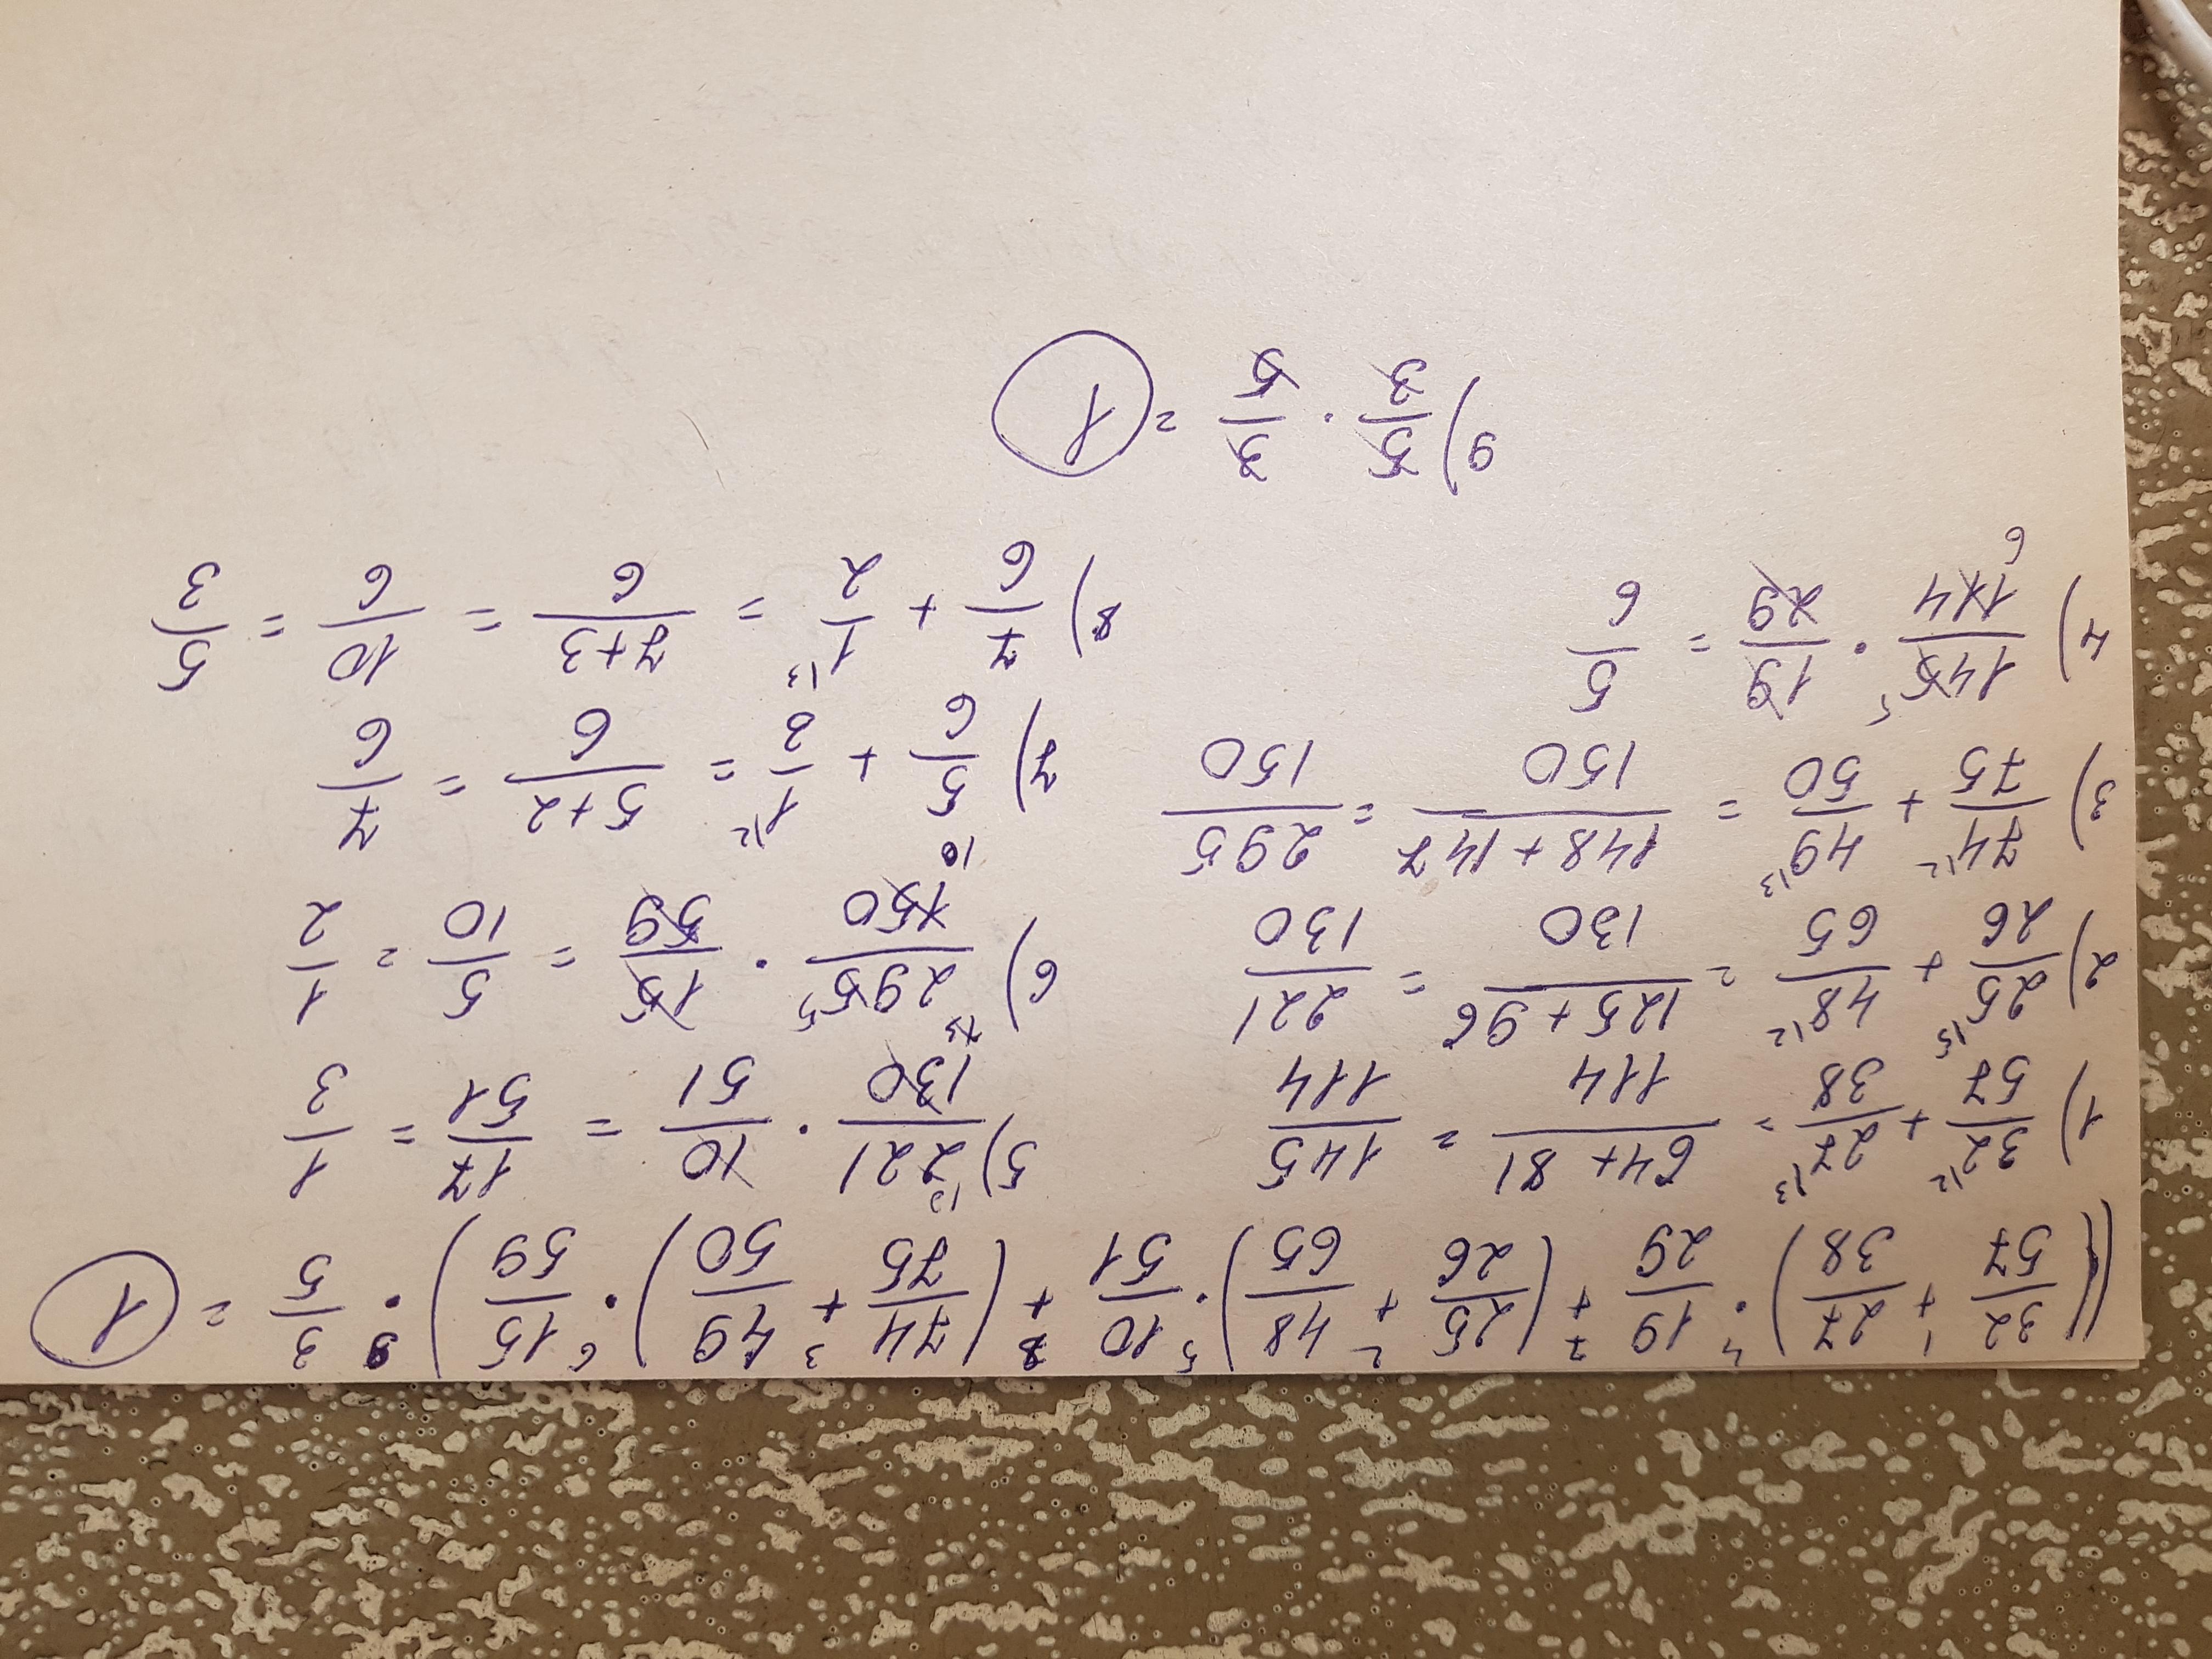 ((32/57 + 27/38) · 19/29 + (25/26 + 48/65) · 10/51 + (74/75 + 49/50) · 15/59) · 3/5 = 1
1) 32/57 + 27/38 = 64+81/114 = 145/114
2) 25/26 + 48/65 = 125+96/130 = 221/130
3) 74/75 + 49/50 = 148+147/150 = 295/150
4) 145/114 · 19/29 = 5/6
5) 221/130 · 10/51 = 17/51 = 1/3
6) 295/150 · 15/59 = 5/10 = 1/2
7) 5/6 + 1/3 = 5+2/6 = 7/6
8) 7/6 + 1/2 = 7+3/6 = 10/6 = 5/3
9) 5/3 · 3/5 = 1